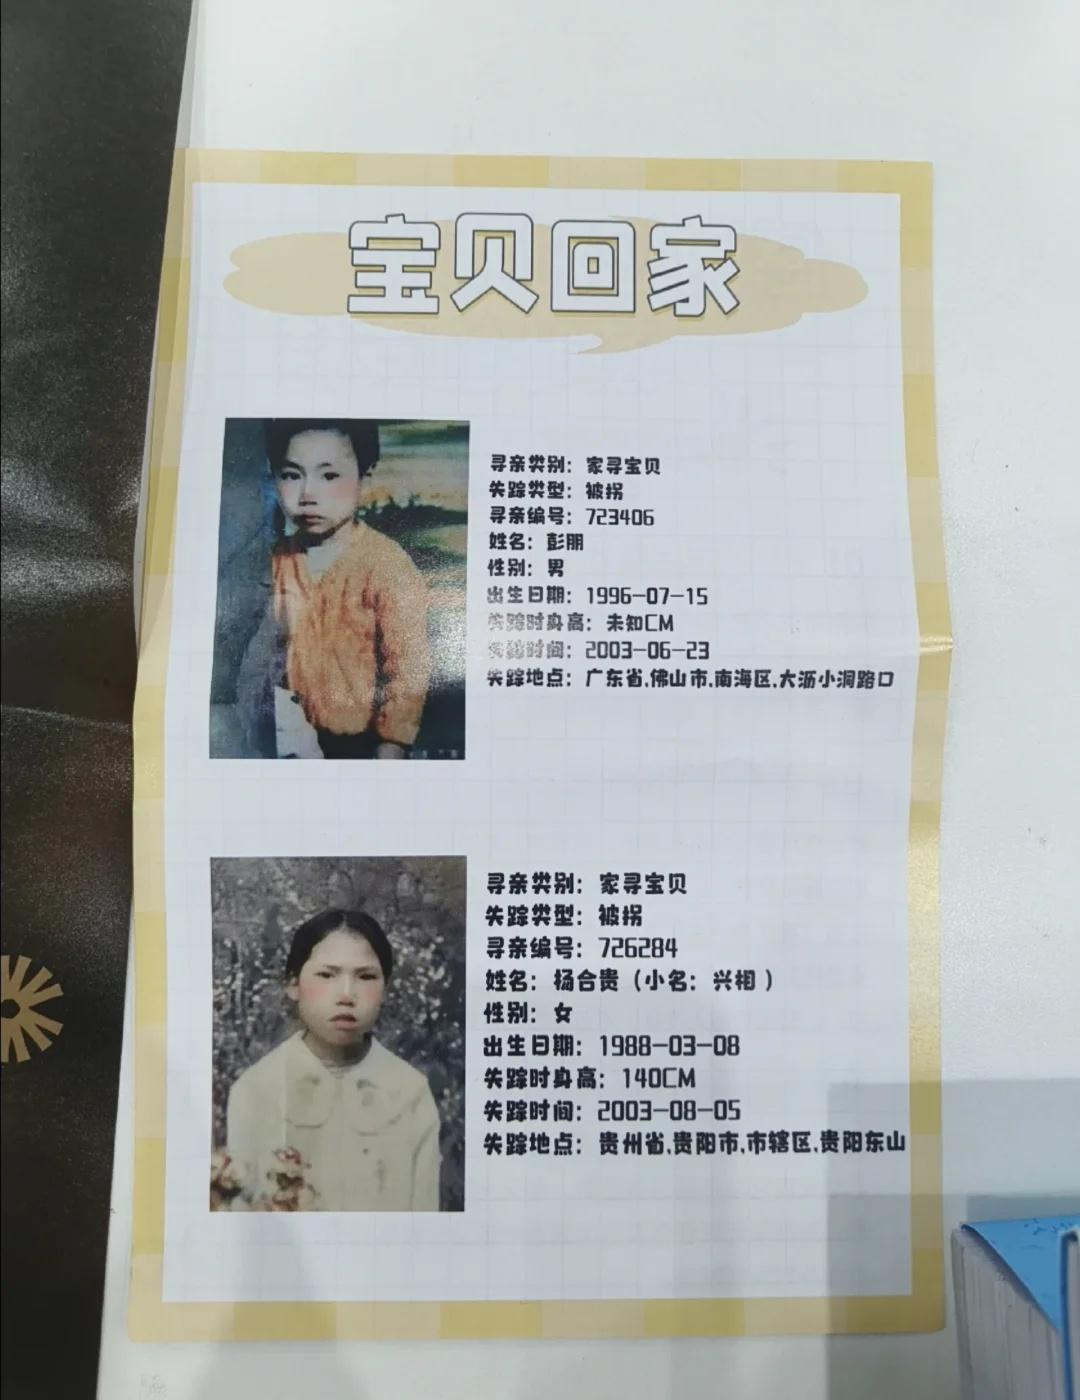 宝贝回家
寻亲类别：家寻宝贝
失踪类型：被拐
寻亲编号：723406
姓名：彭朋
性别：男
出生日期：1996-07-15
失踪时身高：未知CM
失踪时间：2003-06-23
失踪地点：广东省,佛山市,南海区,大沥小洞路口
寻亲类别：家寻宝贝
失踪类型：被拐
寻亲编号：726284
姓名：杨合贵（小名：兴相 ）
性别：女
出生日期：1988-03-08
失踪时身高：140CM
失踪时间：2003-08-05
失踪地点：贵州省,贵阳市,市辖区,贵阳东山